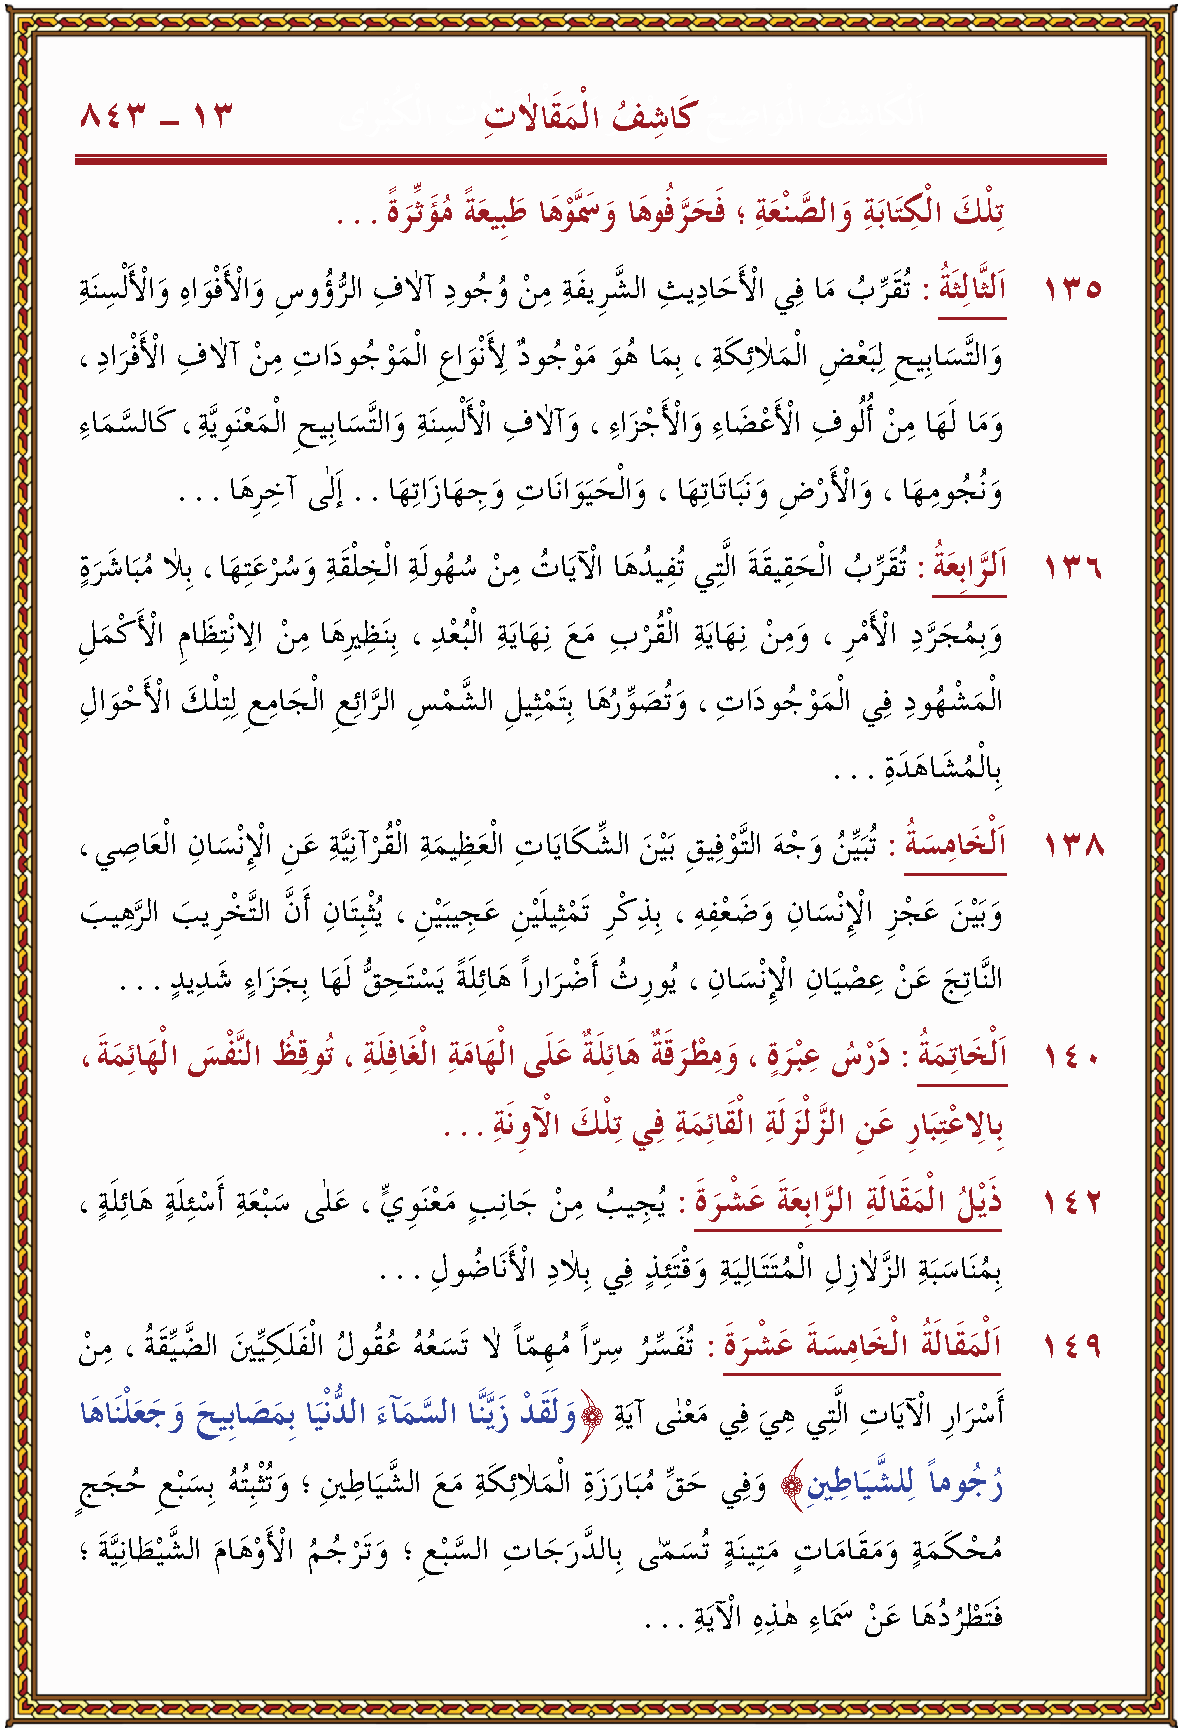 ١٣ – ٨٤٣ كَاشِفُ الْمَقَالَاتِ
تِلْكَ الْكِتَابَةِ وَالصَّنْعَةِ ؛ فَحَرَّفُوهَا وَسَمَّوْهَا طَبِيعَةً مُؤَثِّرَةً . . .
١٣٥ اَلثَّالِثَةُ : تُقَرِّبُ مَا فِي الْأَحَادِيثِ الشَّرِيفَةِ مِنْ وُجُودِ آلَافِ الرُّؤُوسِ وَالْأَفْوَاهِ وَالْأَلْسِنَةِ
وَالتَّسَابِيحِ لِبَعْضِ الْمَلَائِكَةِ ، بِمَا هُوَ مَوْجُودٌ لِأَنْوَاعِ الْمَوْجُودَاتِ مِنْ آلَافِ الْأَفْرَادِ ،
وَمَا لَهَا مِنْ أُلُوفِ الْأَعْضَاءِ وَالْأَجْزَاءِ ، وَآلَافِ الْأَلْسِنَةِ وَالتَّسَابِيحِ الْمَعْنَوِيَّةِ ، كَالسَّمَاءِ
وَنُجُومِهَا ، وَالْأَرْضِ وَنَبَاتَاتِهَا ، وَالْحَيَوَانَاتِ وَجِهَازَاتِهَا . . إِلَى آخِرِهَا . . .
١٣٦ اَلرَّابِعَةُ : تُقَرِّبُ الْحَقِيقَةَ الَّتِي تُفِيدُهَا الْآيَاتُ مِنْ سُهُولَةِ الْخِلْقَةِ وَسُرْعَتِهَا ، بِلَا مُبَاشَرَةٍ
وَبِمُجَرَّدِ الْأَمْرِ ، وَمِنْ نِهَايَةِ الْقُرْبِ مَعَ نِهَايَةِ الْبُعْدِ ، بِنَظِيرِهَا مِنْ الِانْتِظَامِ الْأَكْمَلِ
الْمَشْهُودِ فِي الْمَوْجُودَاتِ ، وَتُصَوِّرُهَا بِتَمْثِيلِ الشَّمْسِ الرَّائِعِ الْجَامِعِ لِتِلْكَ الْأَحْوَالِ
بِالْمُشَاهَدَةِ . . .
١٣٨ اَلْخَامِسَةُ : تُبَيِّنُ وَجْهَ التَّوْفِيقِ بَيْنَ الشِّكَايَاتِ الْعَظِيمَةِ الْقُرْآنِيَّةِ عَنِ الْإِنْسَانِ الْعَاصِي ،
وَبَيْنَ عَجْزِ الْإِنْسَانِ وَضَعْفِهِ ، بِذِكْرِ تَمْثِيلَيْنِ عَجِيبَيْنِ ، يُثْبِتَانِ أَنَّ التَّخْرِيبَ الرَّهِيبَ
النَّاتِجَ عَنْ عِصْيَانِ الْإِنْسَانِ ، يُورِثُ أَضْرَاراً هَائِلَةً يَسْتَحِقُّ لَهَا بِجَزَاءٍ شَدِيدٍ . . .
١٤٠ اَلْخَاتِمَةُ : دَرْسُ عِبْرَةٍ ، وَمِطْرَقَةٌ هَائِلَةٌ عَلَى الْهَامَةِ الْغَافِلَةِ ، تُوقِظُ النَّفْسَ الْهَائِمَةَ ،
بِالِاعْتِبَارِ عَنِ الزَّلْزَلَةِ الْقَائِمَةِ فِي تِلْكَ الْآوِنَةِ . . .
١٤٢ ذَيْلُ الْمَقَالَةِ الرَّابِعَةَ عَشْرَةَ : يُجِيبُ مِنْ جَانِبٍ مَعْنَوِيٍّ ، عَلَى سَبْعَةِ أَسْئِلَةٍ هَائِلَةٍ ،
بِمُنَاسَبَةِ الزَّلَازِلِ الْمُتَتَالِيَةِ وَقْتَئِذٍ فِي بِلَادِ الْأَنَاضُولِ . . .
١٤٩ اَلْمَقَالَةُ الْخَامِسَةَ عَشْرَةَ : تُفَسِّرُ سِرّاً مُهِمّاً لَا تَسَعُهُ عُقُولُ الْفَلَكِيِّينَ الضَّيِّقَةُ ، مِنْ
أَسْرَارِ الْآيَاتِ الَّتِي هِيَ فِي مَعْنَى آيَةِ ﴿وَلَقَدْ زَيَّنَّا السَّمَآءَ الدُّنْيَا بِمَصَابِيحَ وَجَعَلْنَاهَا
رُجُوماً لِلشَّيَاطِينِ﴾ وَفِي حَقِّ مُبَارَزَةِ الْمَلَائِكَةِ مَعَ الشَّيَاطِينِ ؛ وَتُثْبِتُهُ بِسَبْعِ حُجَجٍ
مُحْكَمَةٍ وَمَقَامَاتٍ مَتِينَةٍ تُسَمَّى بِالدَّرَجَاتِ السَّبْعِ ؛ وَتَرْجُمُ الْأَوْهَامَ الشَّيْطَانِيَّةَ ؛
فَتَطْرُدُهَا عَنْ سَمَاءِ هَذِهِ الْآيَةِ . . .